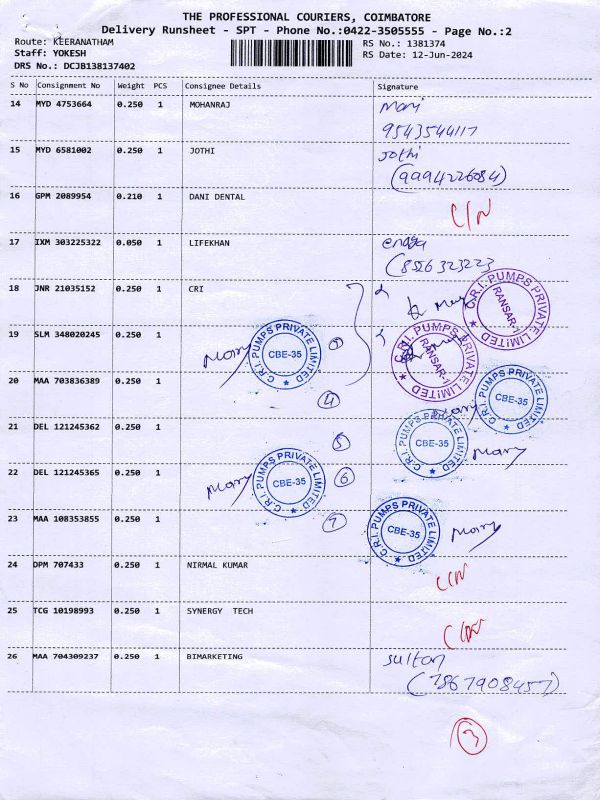 THE PROFESSIONAL COURIERS, COIMBATORE
Delivery Runsheet - SPT - Phone No.:0422-3505555 - Page No.:2
Route: KEERANATHAM RS No.: 1381374
Staff: YOKESH RS Date: 12-Jun-2024
DRS No.: DCJB138137402
S No Consignment No Weight PCS Consignee Details Signature
14 MYD 4753664 0.250 1 MOHANRAJ
9543544117
15 MYD 6581002 0.250 1 JOTHI Jothi
(9994226084)
16 GPM 2089954 0.210 1 DANI DENTAL C/N
17 IXM 303225322 0.050 1 LIFEKHAN
(8526323223
18 JNR 21035152 0.250 1 CRI
C.R.I. PUMPS PRIVATE LIMITED ★ RANSAR-1
19 SLM 348020245 0.250 1
C.R.I. PUMPS PRIVATE LIMITED ★ CBE-35
C.R.I. PUMPS PRIVATE LIMITED ★ RANSAR-1
20 MAA 703836389 0.250 1
4
C.R.I. PUMPS PRIVATE LIMITED ★ CBE-35
21 DEL 121245362 0.250 1
5
C.R.I. PUMPS PRIVATE LIMITED ★ CBE-35
22 DEL 121245365 0.250 1
C.R.I. PUMPS PRIVATE LIMITED ★ CBE-35
6
23 MAA 108353855 0.250 1
7
C.R.I. PUMPS PRIVATE LIMITED ★ CBE-35
24 DPM 707433 0.250 1 NIRMAL KUMAR C/N
25 TCG 10198993 0.250 1 SYNERGY TECH
26 MAA 704309237 0.250 1 BIMARKETING Sultan
(7867908457)
3